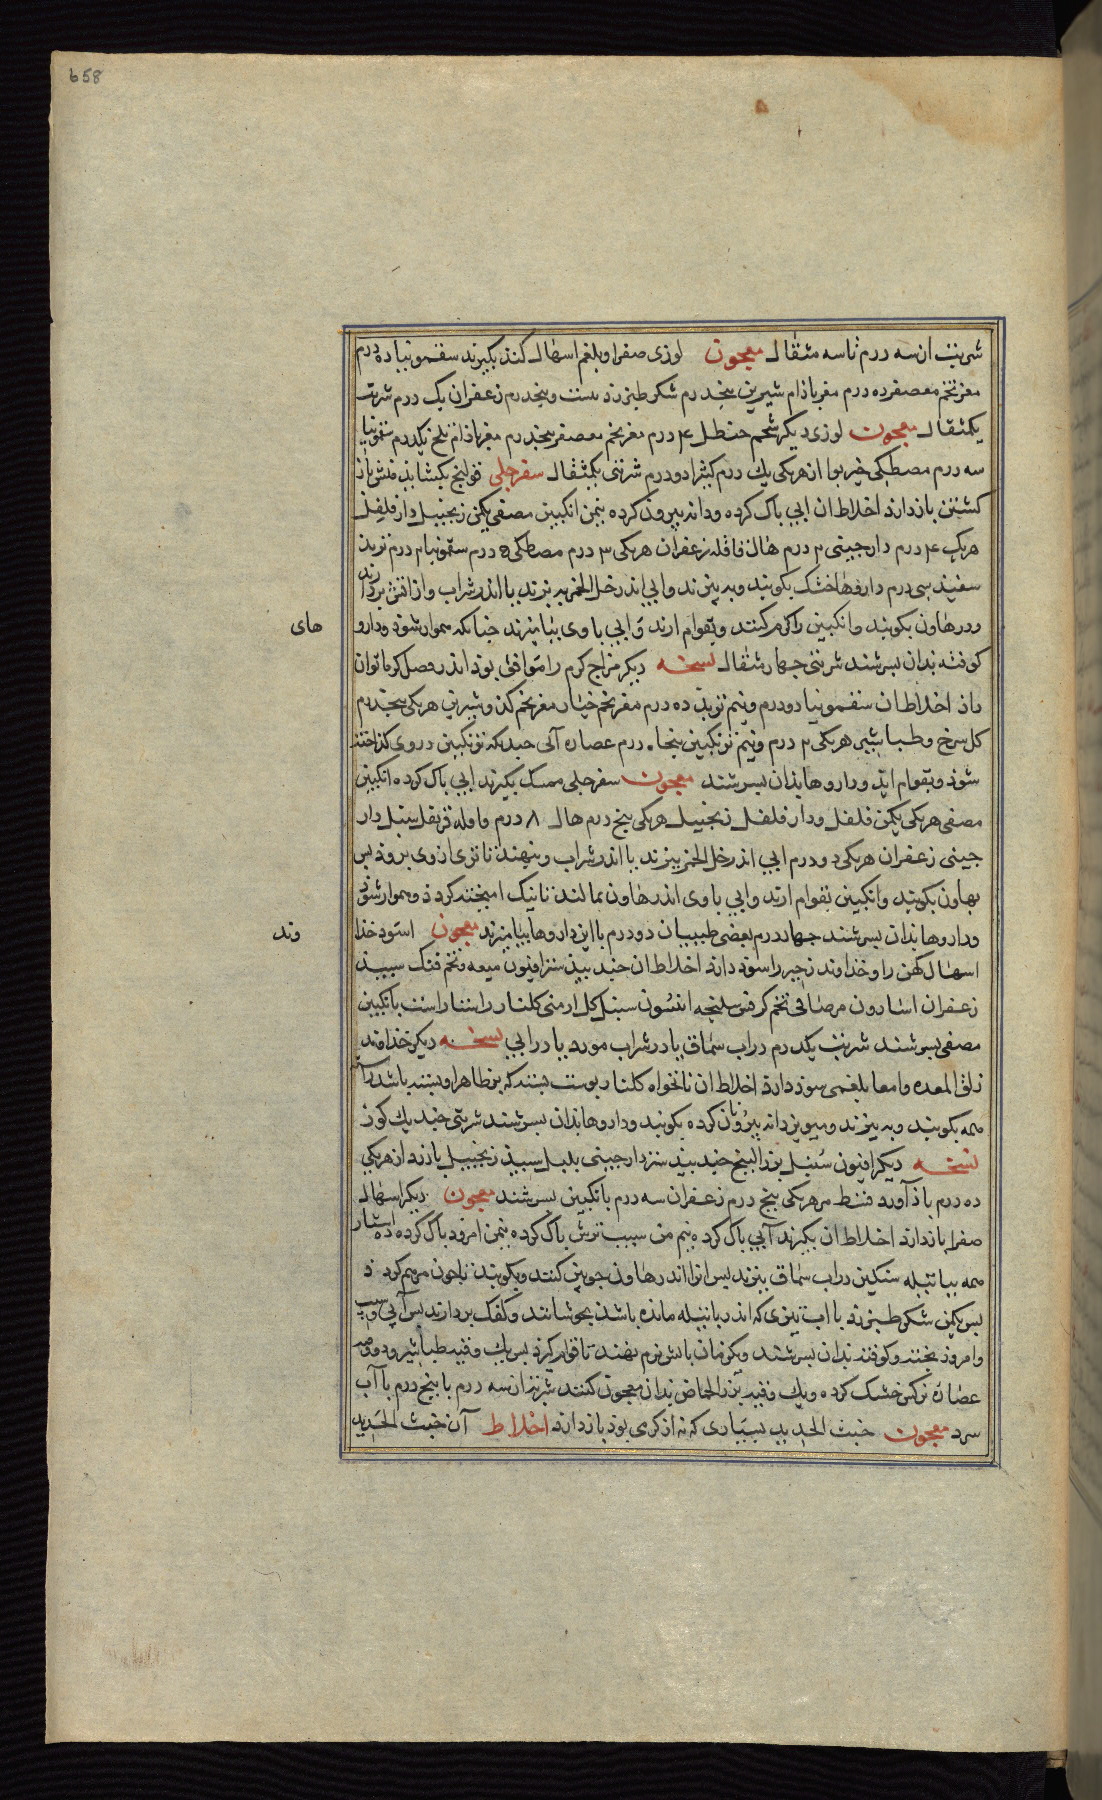 658
شربت از سه درم تا سه مثقال معجون لوزی صفرا و بلغم اسهال کند بگیرند سقمونیا ده درم
مغز تخم معصفر ده درم مغز باذام شیرین پنجدرم شکر طبرزد بیست و پنجدرم زعفران یک درم شربت
یکمثقال معجون لوزی دیگر شحم حنظل ۴ درم مغز تخم معصفر پنجدرم مغز باذام تلخ یکدرم سقمونیا
سه درم مصطکی خیربوا از هریکی یک درم کثیرا دو درم شربتی یکمثقال سفرجلی قولنج بکشاید منش از
کشتن باز دارد اخلاط ان ابی پاک کرده و دانه بیرون کرده بنمن انکبین مصفی یکمن زنجبیل دار فلفل
هریک ۴ درم دارچینی ۲ درم هال قاقله زعفران هریکی ۳ درم مصطکی ۵ درم سقمونیا ۲ درم تربد
سفید سی درم داروها خشک بکوبند و به بیزند و ابی اندر خل الخمر بپزند یا اندر شراب و از اتش بردارند
و در هاون بکوبند و انکبین را کرم کنند و بقوام ارند و ابی با وی بیامیزند چنانکه هموار شود و دارو
های
کوفته بدان بسرشند شربتی چهار مثقال نسخه دیگر مزاج کرم را موافق بود اندر فصل کرما توان
داد اخلاط ان سقمونیا دو درم و نیم تربد ده درم مغز تخم خیار مغز تخم کدو شیرین هریکی پنجدرم
کل سرخ و طباشیر هریکی ۲ درم و نیم ترنکبین پنجاه درم عصاره آبی چندانکه ترنکبین در وی کداخته
شود و بقوام اید و داروها بدان بسرشند معجون سفرجلی ممسک بگیرند ابی پاک کرده انکبین
مصفی هریکی یکمن فلفل و دار فلفل زنجبیل هریکی پنج درم هال ۸ درم قاقله قرنفل سنبل دار
چینی زعفران هریکی دو درم ابی اندر خل الخمر بپزند یا اندر شراب و بنهند تا تری از وی برود پس
بهاون بکوبند و انکبین بقوام ارند و ابی با وی اندر هاون بمالند تا نیک امیخته کردد و هموار شود
و داروها بدان بسرشند چهاردرم بعضی طبیبان دو درم با این داروها بیامیزند معجون اسود خدا
وند
اسهال کهن را و خداوند زحیر را سود دارد اخلاط ان جندبیدستر افیون میعه و تخم فنک سپید
زعفران اسارون مرصافی تخم کرفس سلیخه انیسون سنبل کل ارمنی کلنار راستاراست بانکبین
مصفی بسرشند شربت یکدرم در اب سماق یا در شراب مورد یا در ابی نسخه دیگر خداوند
زلق المعده و امعا بلغمی سود دارد اخلاط ان نانخواه کلنار پوست پسته که بر ظاهر او پسته باشد
همه بکوبند و به بیزند و میویز دانه بیرون کرده بکوبند و داروها بدان بسرشند شربتی چند یک کوز
نسخه دیگر افیون سنبل بزر البنج جندبیدستر دارچینی پلپل سپید زنجبیل بارزد از هریکی
ده درم باد آورد قسط مر هریکی پنج درم زعفران سه درم بانکبین بسرشند معجون دیگر اسهال
صفرا باز دارد اخلاط ان بگیرند آبی پاک کرده نیم من سیب ترش پاک کرده نیمن امرود پاک کرده ده استار
همه بپاتیله سنکین در اب سماق بپزند پس انرا اندر هاون چوبین کنند و بکوبند تا چون مرهم کردد
پس یکمن شکر طبرزد با اب تیزی که اندر پاتیله مانده باشد بجوشانند و کفک بردارند پس آبی و سیب
و امرود پخته و کوفته بدان بسرشند و یکزمان باتش نرم نهند تا قوام کیرد پس یک وقیه طباشیر و دو وقیه
عصارة نرکس خشک کرده و یک وقیه بزر الحماض بدان معجون کنند شربت از سه درم تا پنج درم با آب
سرد معجون خبث الحدید بیماری که نه از کرمی بود باز دارد اخلاط آن خبث الحدید